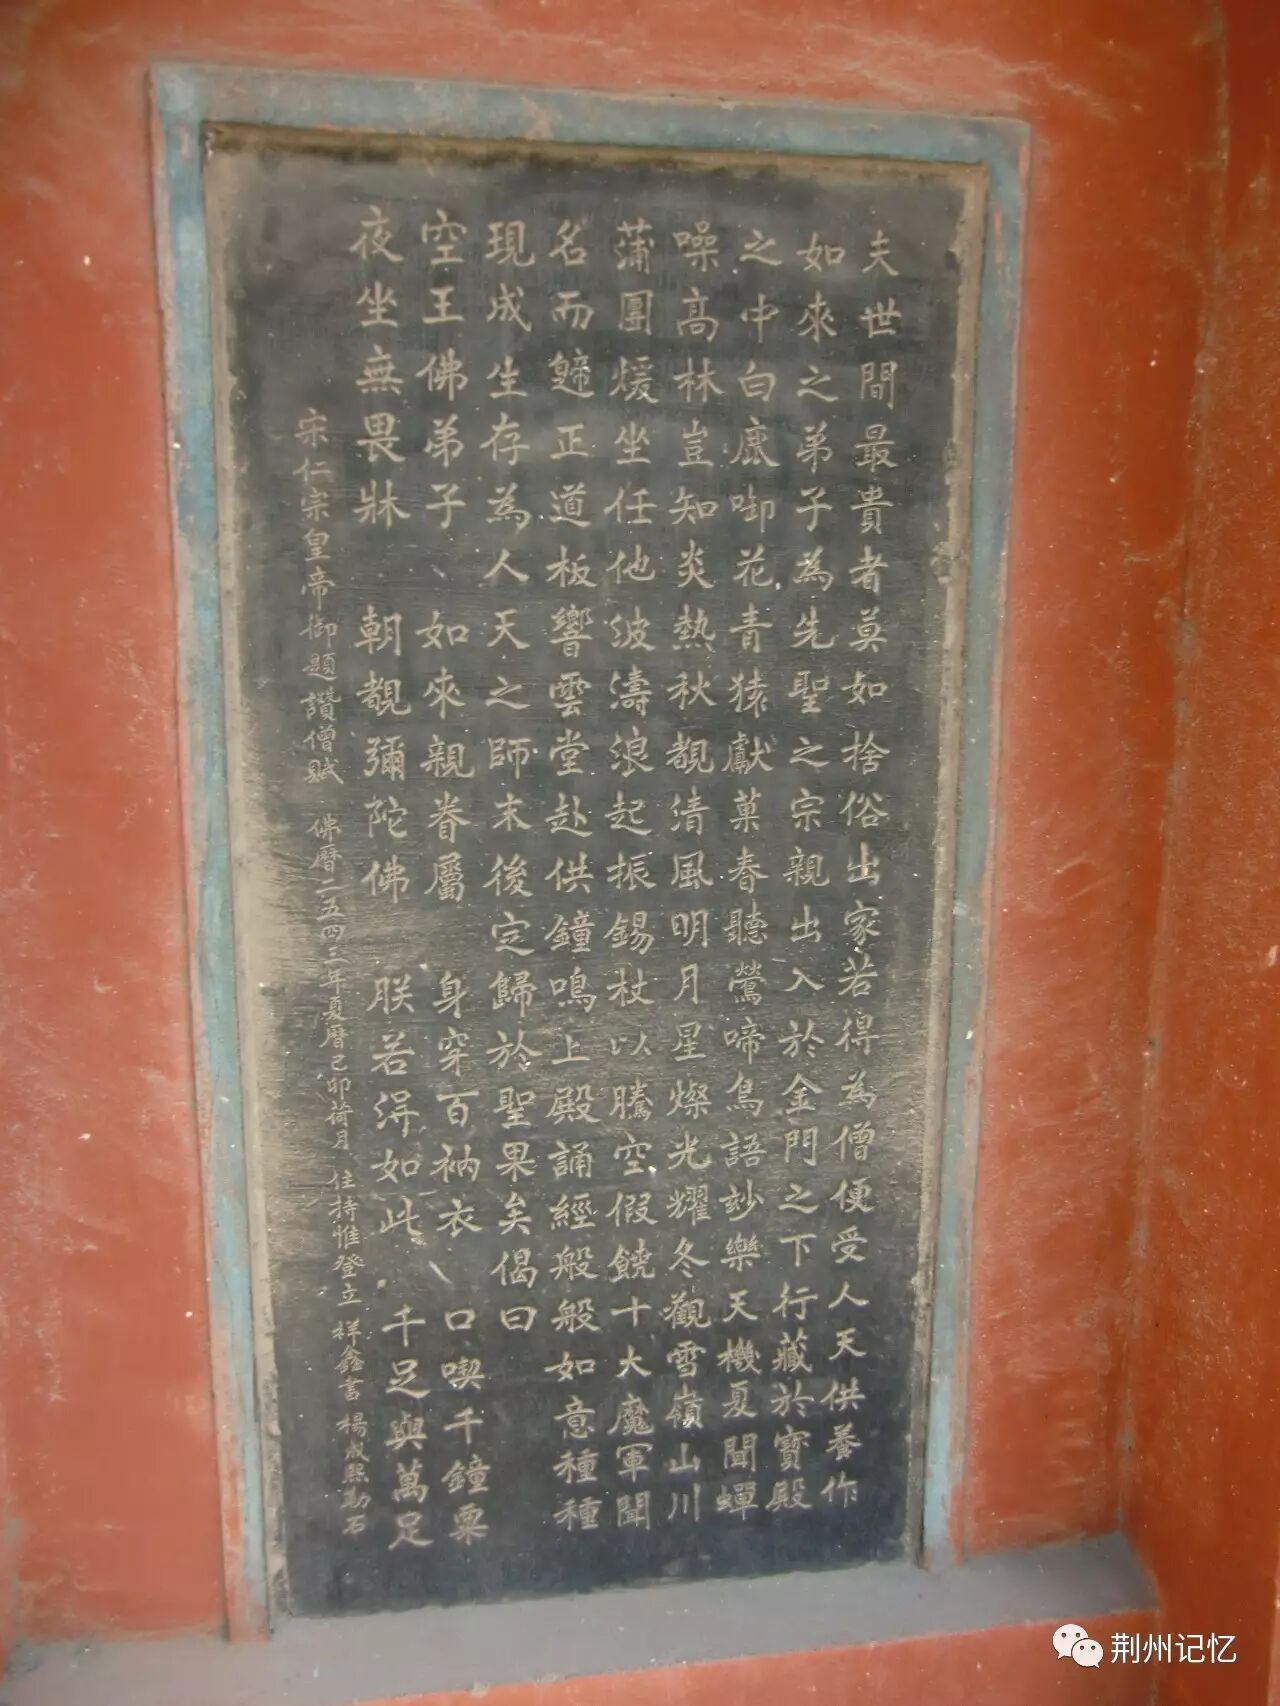 夫世間最貴者莫如捨俗出家若得為僧便受人天供養作
如來之弟子為先聖之宗親出入於金門之下行藏於寳殿
之中白鹿啣花青猿獻菓春聽鶯啼鳥語妙樂天機夏聞蟬
噪高林豈知炎熱秋覩清風明月星燦光耀冬觀雪嶺山川
蒲團煖坐任他波濤浪起振錫杖以騰空假饒十大魔軍聞
名而歸正道板響雲堂赴供鐘鳴上殿誦經般般如意種種
現成生存為人天之師末後定歸於聖果矣偈曰
空王佛弟子 如來親眷屬 身穿百衲衣 口喫千鐘粟
夜坐無畏牀 朝覩彌陀佛 朕若得如此 千足與萬足
宗仁宗皇帝御題讚僧賦 佛曆二五四三年夏曆己卯荷月 住持惟登立 祥鑫書 楊成熙勒石
荆州记忆